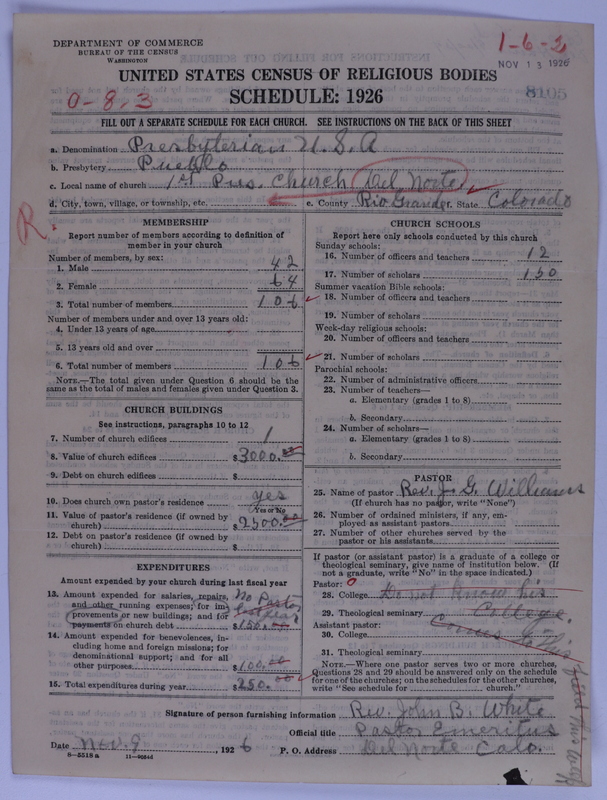 DEPARTMENT OF COMMERCE
BUREAU OF THE CENSUS
WASHINGTON
1-6-2
NOV 13 1926
8105
UNITED STATES CENSUS OF RELIGIOUS BODIES
SCHEDULE: 1926
0-8,3
FILL OUT A SEPARATE SCHEDULE FOR EACH CHURCH. SEE INSTRUCTIONS ON THE BACK OF THIS SHEET
a. Denomination Presbyterian U.S.A
b. Presbytery Pueblo
c. Local name of church 1st Pres. Church Del Norte
d. City, town, village, or township, etc. e. County Rio Grande State Colorado
R.
MEMBERSHIP
Report number of members according to definition of member in your church
Number of members, by sex:
1. Male 42
2. Female 64
3. Total number of members 106
Number of members under and over 13 years old:
4. Under 13 years of age
5. 13 years old and over
6. Total number of members 106
NOTE.—The total given under Question 6 should be the same as the total of males and females given under Question 3.
CHURCH BUILDINGS
See instructions, paragraphs 10 to 12
7. Number of church edifices 1
8. Value of church edifices $3000.00
9. Debt on church edifices $
10. Does church own pastor's residence yes
Yes or No
11. Value of pastor's residence (if owned by church) $2500.00
12. Debt on pastor's residence (if owned by church) $
EXPENDITURES
Amount expended by your church during last fiscal year
13. Amount expended for salaries, repairs, and other running expenses; for improvements or new buildings; and for payments on church debt $150.00
No Pastor last year
14. Amount expended for benevolences, including home and foreign missions; for denominational support; and for all other purposes $100.00
15. Total expenditures during year $250.
CHURCH SCHOOLS
Report here only schools conducted by this church
Sunday schools:
16. Number of officers and teachers 12
17. Number of scholars 150
Summer vacation Bible schools:
18. Number of officers and teachers
19. Number of scholars
Week-day religious schools:
20. Number of officers and teachers
21. Number of scholars
Parochial schools:
22. Number of administrative officers
23. Number of teachers—
a. Elementary (grades 1 to 8)
b. Secondary
24. Number of scholars—
a. Elementary (grades 1 to 8)
b. Secondary
PASTOR
25. Name of pastor Rev. J. G. Williams
(If church has no pastor, write "None")
26. Number of ordained ministers, if any, employed as assistant pastors
27. Number of other churches served by the pastor or his assistants
If pastor (or assistant pastor) is a graduate of a college or theological seminary, give name of institution below. (If not a graduate, write "No" in the space indicated.)
Pastor: 0
28. College Do not know his
29. Theological seminary College.
Assistant pastor:
30. College Comes to this field this week
31. Theological seminary
NOTE.—Where one pastor serves two or more churches, Questions 28 and 29 should be answered only on the schedule for one of the churches; on the schedules for the other churches, write "See schedule for church."
Signature of person furnishing information Rev. John B. White
Official title Pastor Emeritus
Date Nov. 9, 1926 P. O. Address Del Norte Colo.
8—5518a 11—9064d